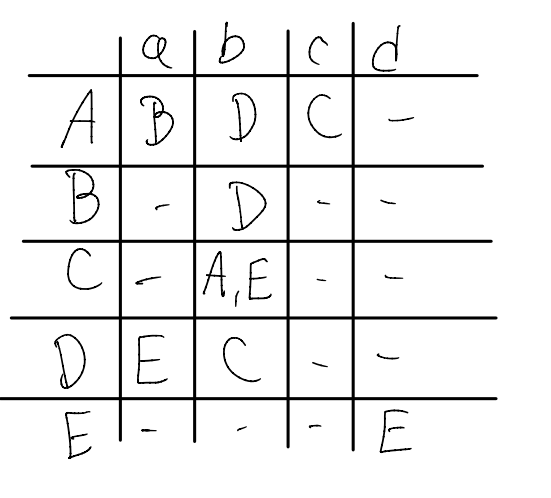 a b c d
A B D C -
B - D - -
C - A,E - -
D E C - -
E - - - E